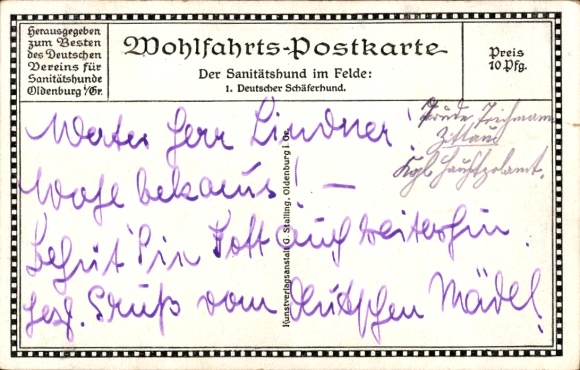 Herausgegeben
zum Besten
des Deutschen
Vereins für
Sanitätshunde
Oldenburg i/Gr.
Wohlfahrts-Postkarte
Der Sanitätshund im Felde:
1. Deutscher Schäferhund.
Preis
10 Pfg.
Werter Herr Lindner!
Wohl bekam's! —
Behüt' Sie Gott auch weiterhin.
Herzl. Gruß vom Deutschen Mädel!
Trude
Zittau
Kgl. Hauptzollamt.
Kunstverlagsanstalt G. Stalling, Oldenburg i. Gr.